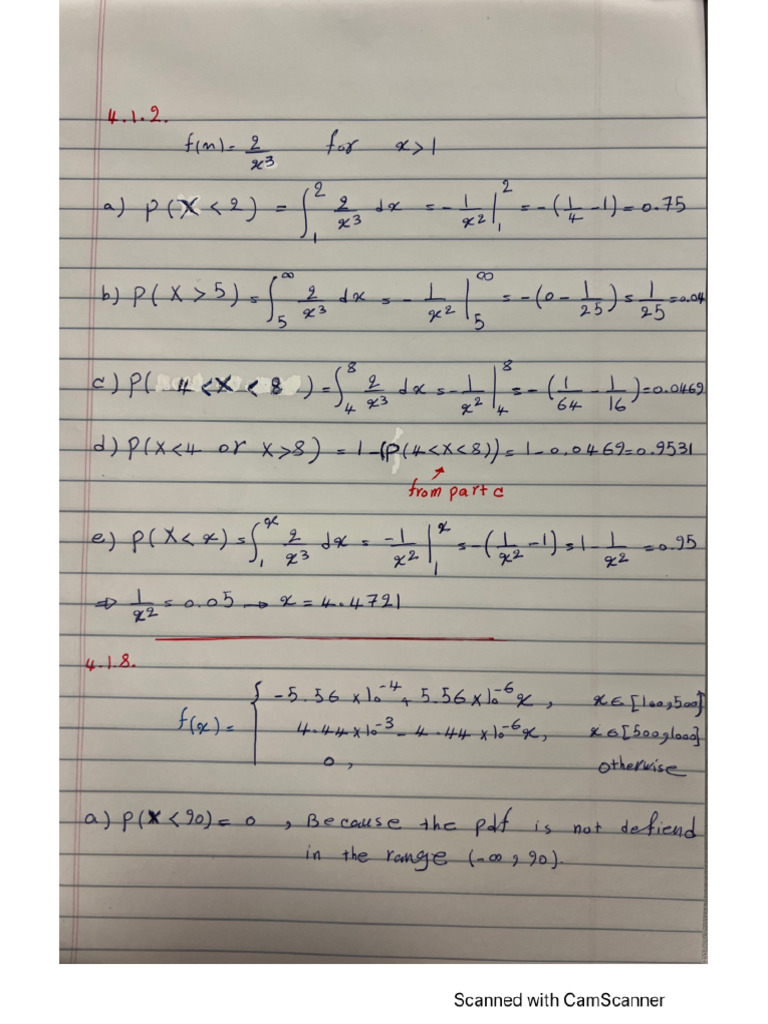 4.1.2.
f(n) = 2/x³ for x>1
a) P(X < 2) = ∫₁² 2/x³ dx = -1/x² |₁² = -(1/4 - 1) = 0.75
b) P(X > 5) = ∫₅^∞ 2/x³ dx = -1/x² |₅^∞ = -(0 - 1/25) = 1/25 = 0.04
c) P( 4 < X < 8 ) = ∫₄⁸ 2/x³ dx = -1/x² |₄⁸ = -(1/64 - 1/16) = 0.0469
d) P(X<4 or X>8) = 1-(P(4<X<8)) = 1-0.0469=0.9531
from part c
e) P(X < x) = ∫₁ˣ 2/x³ dx = -1/x² |₁ˣ = -(1/x² - 1) = 1 - 1/x² = 0.95
⇒ 1/x² = 0.05 → x = 4.4721
4.1.8.
f(x) = { -5.56 x10⁻⁴ + 5.56 x10⁻⁶x , x ∈ [100,500]
4.44 x10⁻³ - 4.44 x10⁻⁶x, x ∈ [500,1000]
0, otherwise
a) P(X < 90) = 0 , Because the pdf is not defiend
in the range (-∞, 90).
Scanned with CamScanner